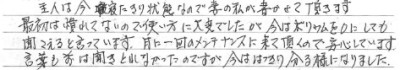 主人は今寝たきり状態なので妻の私が書かせて頂きます
最初は慣れてないので使い方に大変でしたが今はボリウムを0にしても
聞こえると言っています。月に一回のメンテナンスに来て頂くので安心しています
言葉も前は聞きとれなかったのですが今ははっきり分る様になりました。